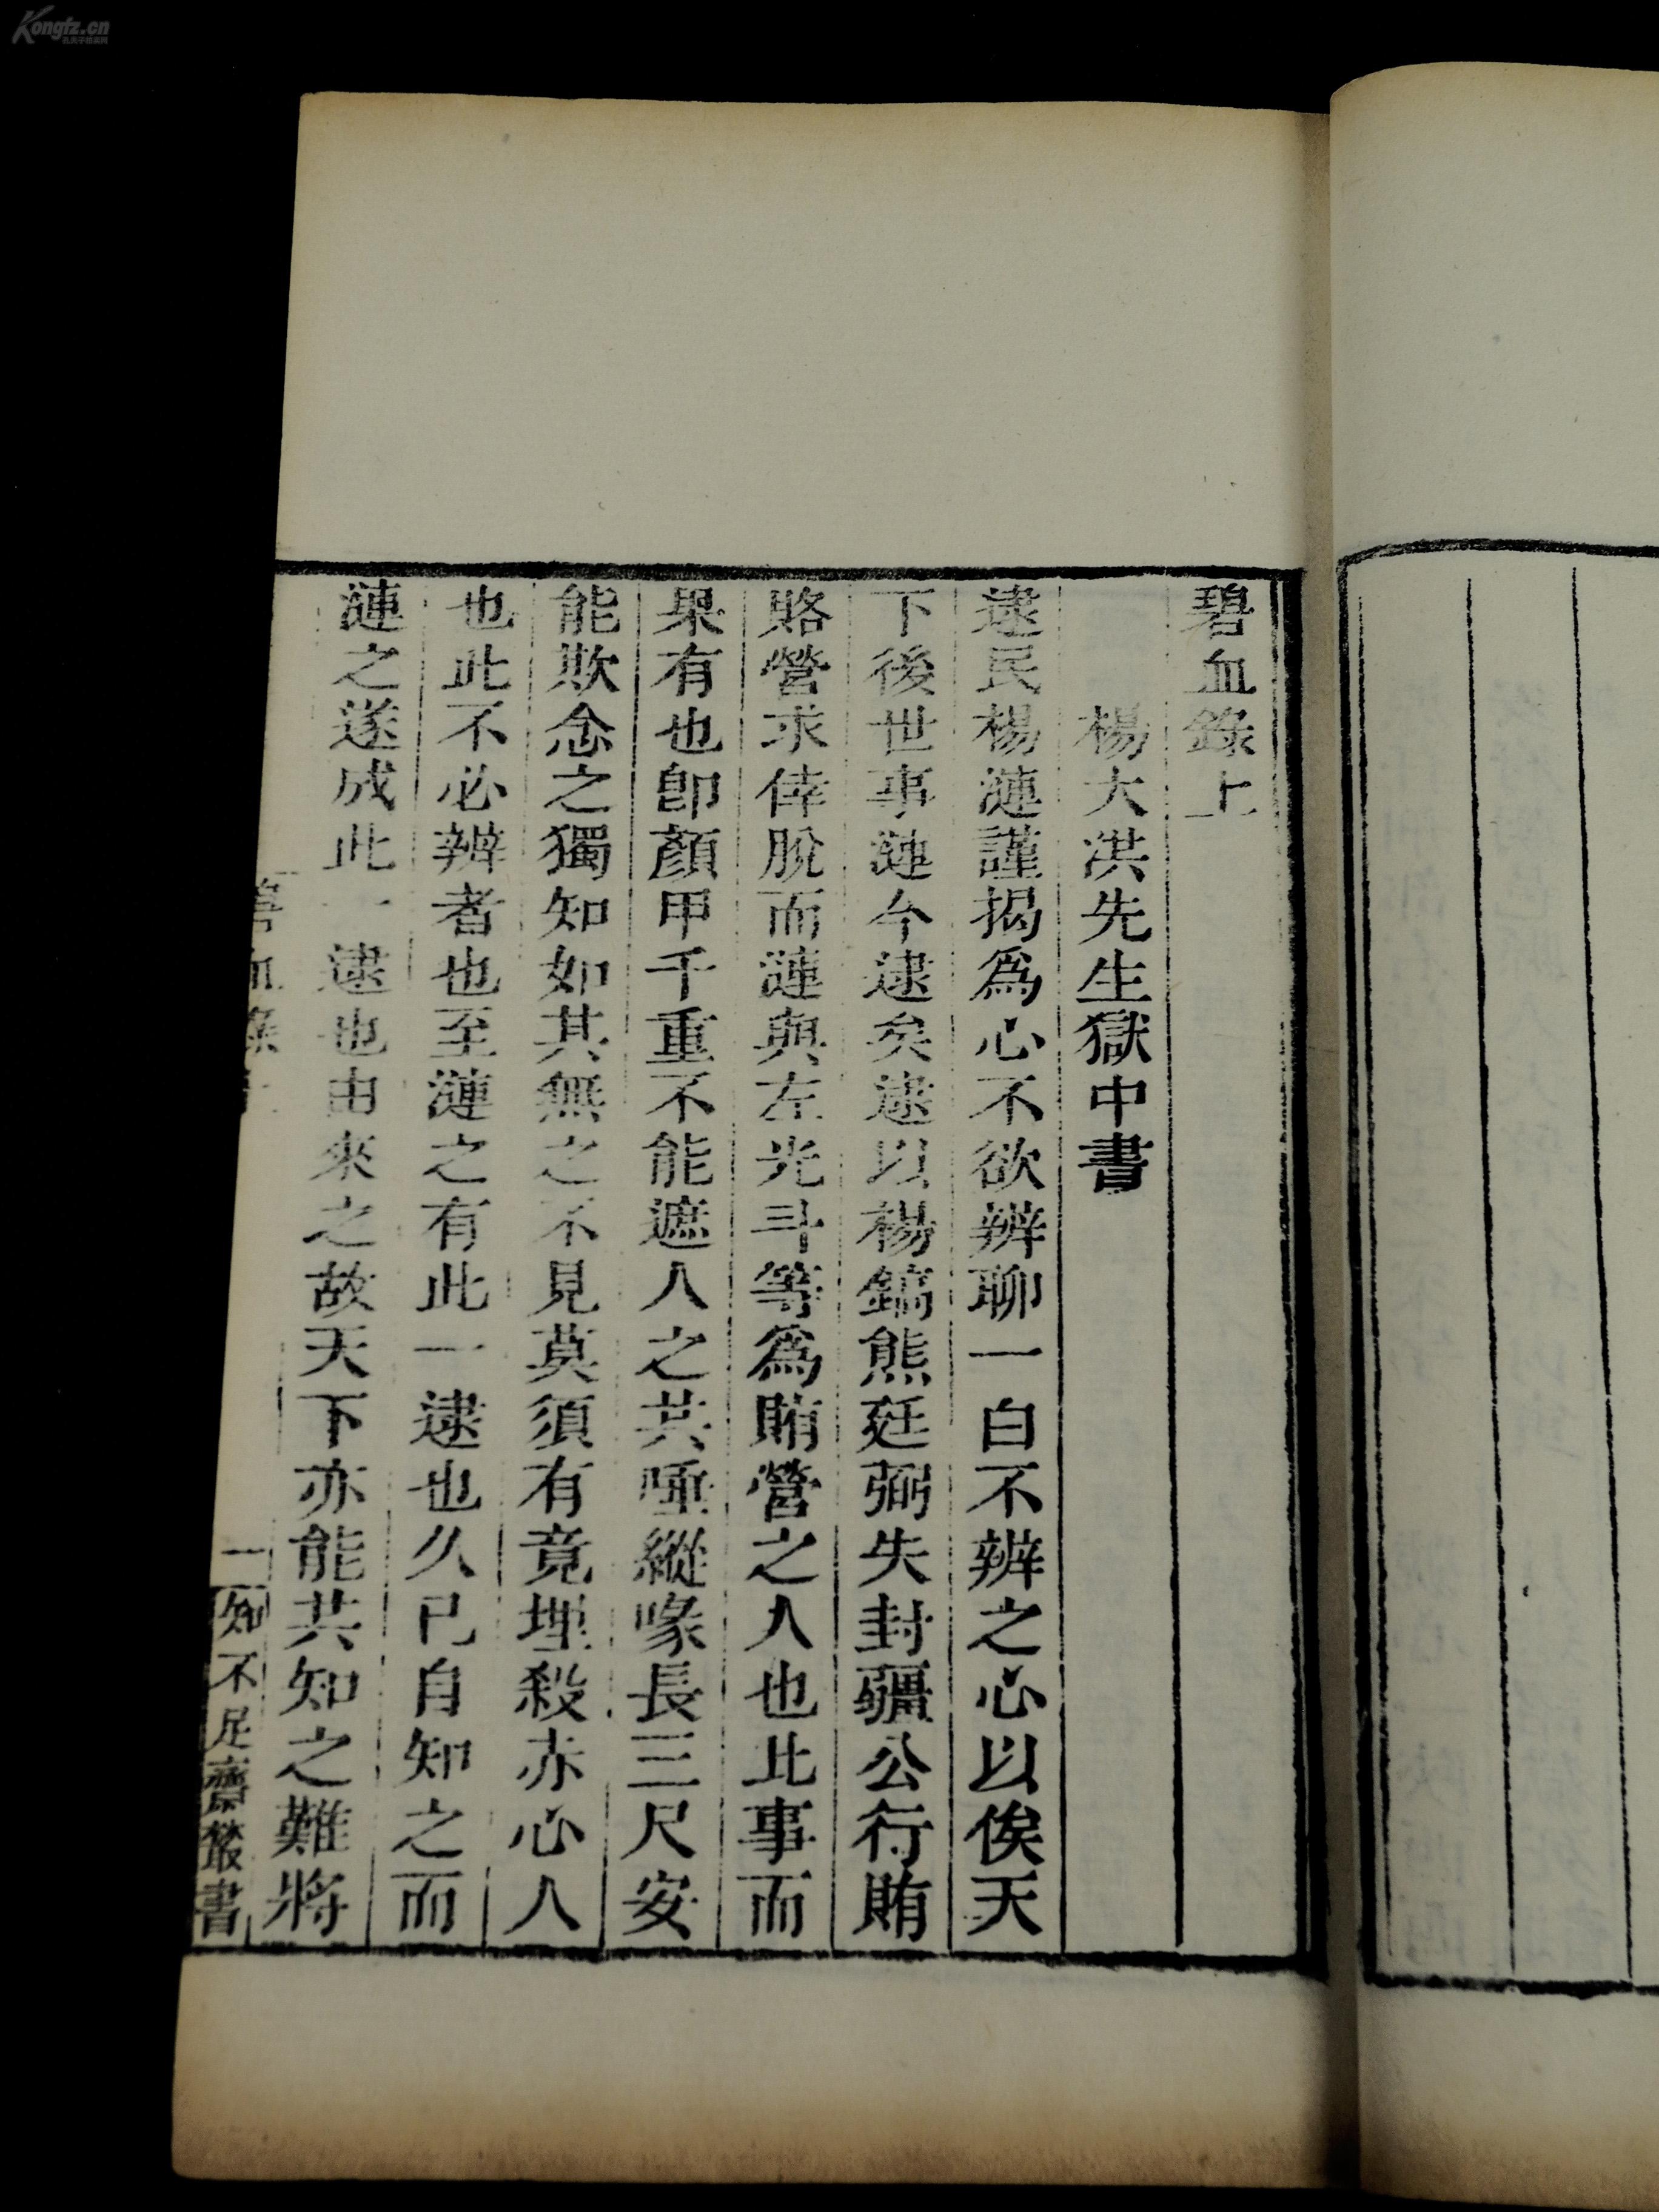 碧血錄上
楊大洪先生獄中書
逮民楊漣謹揭爲心不欲辨聊一白不辨之心以俟天
下後世事漣今逮矣逮以楊鎬熊廷弼失封疆公行賄
賂營求倖脫而漣與左光斗等爲賄營之人也此事而
果有也卽顏甲千重不能遮人之共唾縱喙長三尺安
能欺念之獨知如其無之不見莫須有竟埋殺赤心人
也此不必辨者也至漣之有此一逮也久已自知之而
漣之遂成此一逮也由來之故天下亦能共知之難將
碧血錄上
一
知不足齋叢書
Kongfz.cn
孔夫子旧书网